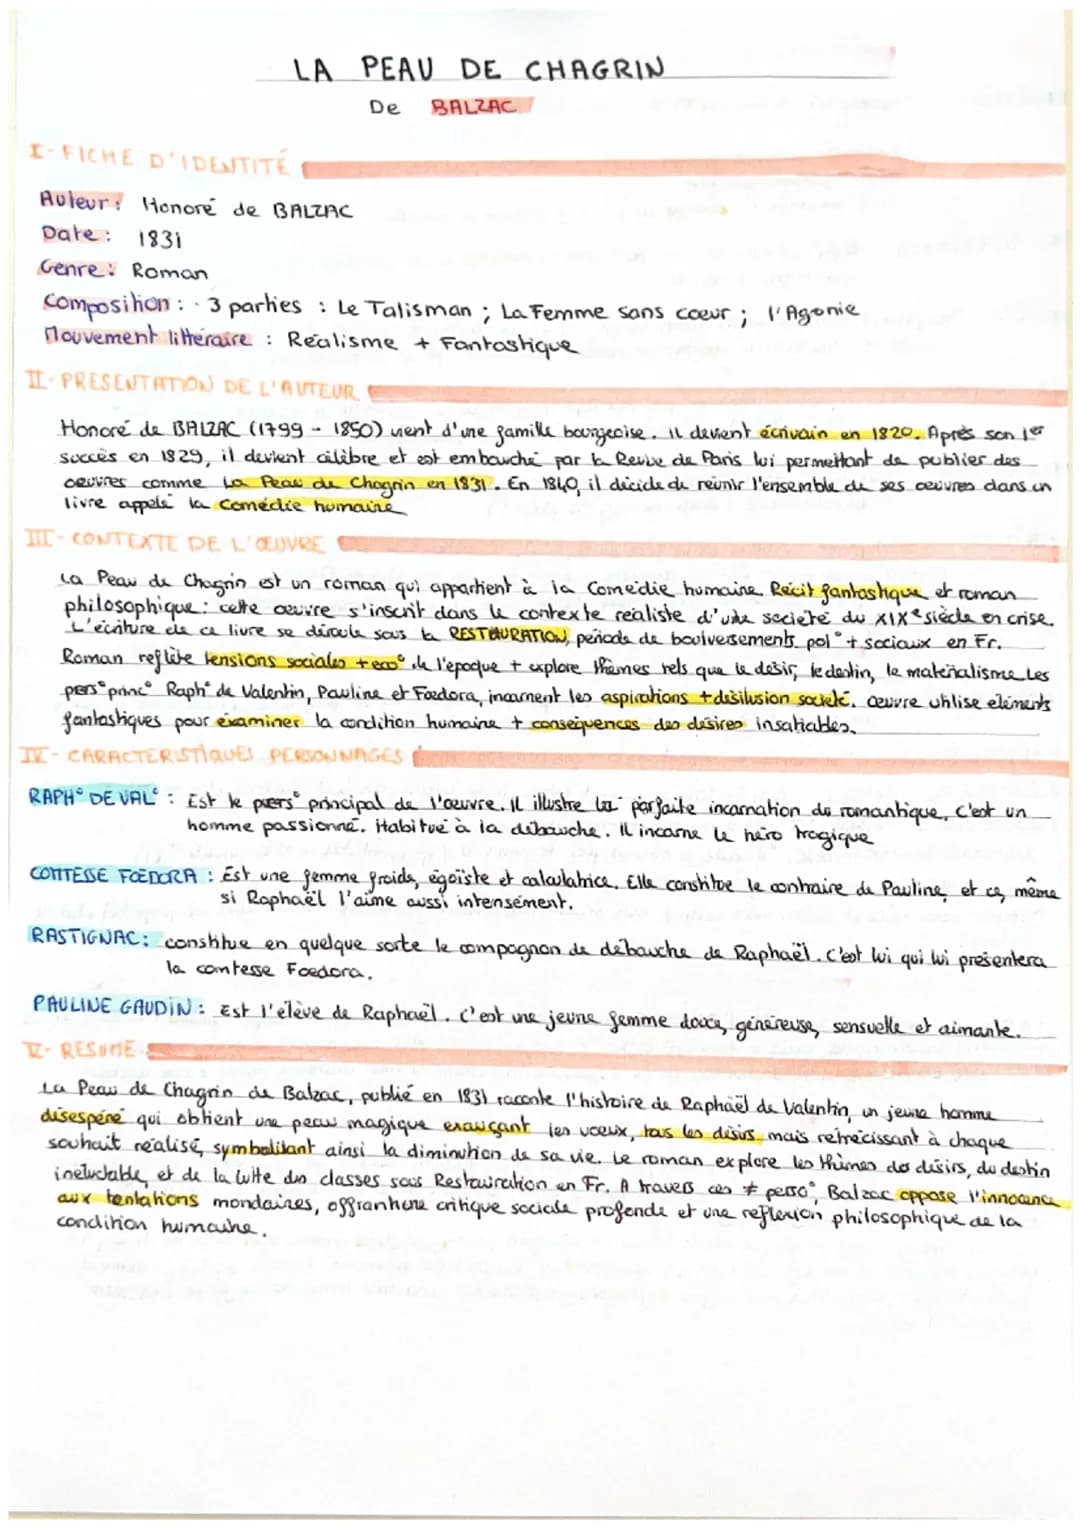 LA PEAU DE CHAGRIN
De BALZAC
I - FICHE D'IDENTITÉ
Auteur : Honoré de BALZAC
Date : 1831
Genre : Roman
Composition : - 3 parties : Le Talisman ; La Femme sans coeur ; l'Agonie
Mouvement littéraire : Réalisme + Fantastique
II - PRESENTATION DE L'AUTEUR
Honoré de BALZAC (1799 - 1850) vient d'une famille bourgeoise. Il devient écrivain en 1820. Après son 1er
succès en 1829, il devient célèbre et est embauché par la Revue de Paris lui permettant de publier des
oeuvres comme La Peau de Chagrin en 1831. En 1840, il décide de réunir l'ensemble de ses oeuvres dans un
livre appelé la Comédie humaine
III - CONTEXTE DE L'OEUVRE
La Peau de Chagrin est un roman qui appartient à la Comédie humaine. Récit fantastique et roman
philosophique : cette oeuvre s'inscrit dans le contexte réaliste d'une société du XIXe siècle en crise.
L'écriture de ce livre se déroule sous la RESTAURATION, période de bouleversements pol° + sociaux en Fr.
Roman reflète tensions sociales + eco° de l'époque + explore thèmes tels que le désir, le destin, le matérialisme. Les
pers° princ° Raph° de Valentin, Pauline et Foedora, incarnent les aspirations + désilusion société. oeuvre utilise éléments
fantastiques pour examiner la condition humaine + conséquences des désires insatiables.
IV - CARACTERISTIQUES PERSONNAGES
RAPH° DE VAL° : Est le poers° principal de l'oeuvre. Il illustre la parfaite incarnation du romantique, c'est un
homme passionné. Habitué à la débauche. Il incarne le héro tragique
COMTESSE FOEDORA : Est une femme froide, égoïste et calculatrice. Elle constitue le contraire de Pauline, et ce, même
si Raphaël l'aime aussi intensément.
RASTIGNAC : constitue en quelque sorte le compagnon de débauche de Raphaël. C'est lui qui lui présentera
la comtesse Foedora.
PAULINE GAUDIN : Est l'élève de Raphaël. C'est une jeune femme douce, généreuse, sensuelle et aimante.
V - RESUME
La Peau de Chagrin de Balzac, publié en 1831 raconte l'histoire de Raphaël de Valentin, un jeune homme
désespéré qui obtient une peau magique exauçant les voeux, tous les désirs mais rétrécissant à chaque
souhait réalisé, symbolisant ainsi la diminution de sa vie. Le roman explore les thèmes des désirs, du destin
inéluctable, et de la lutte des classes sous Restauration en Fr. A travers ces ≠ perso°, Balzac oppose l'innocence
aux tentations mondaines, offrant une critique sociale profonde et une réflexion philosophique de la
condition humaine.